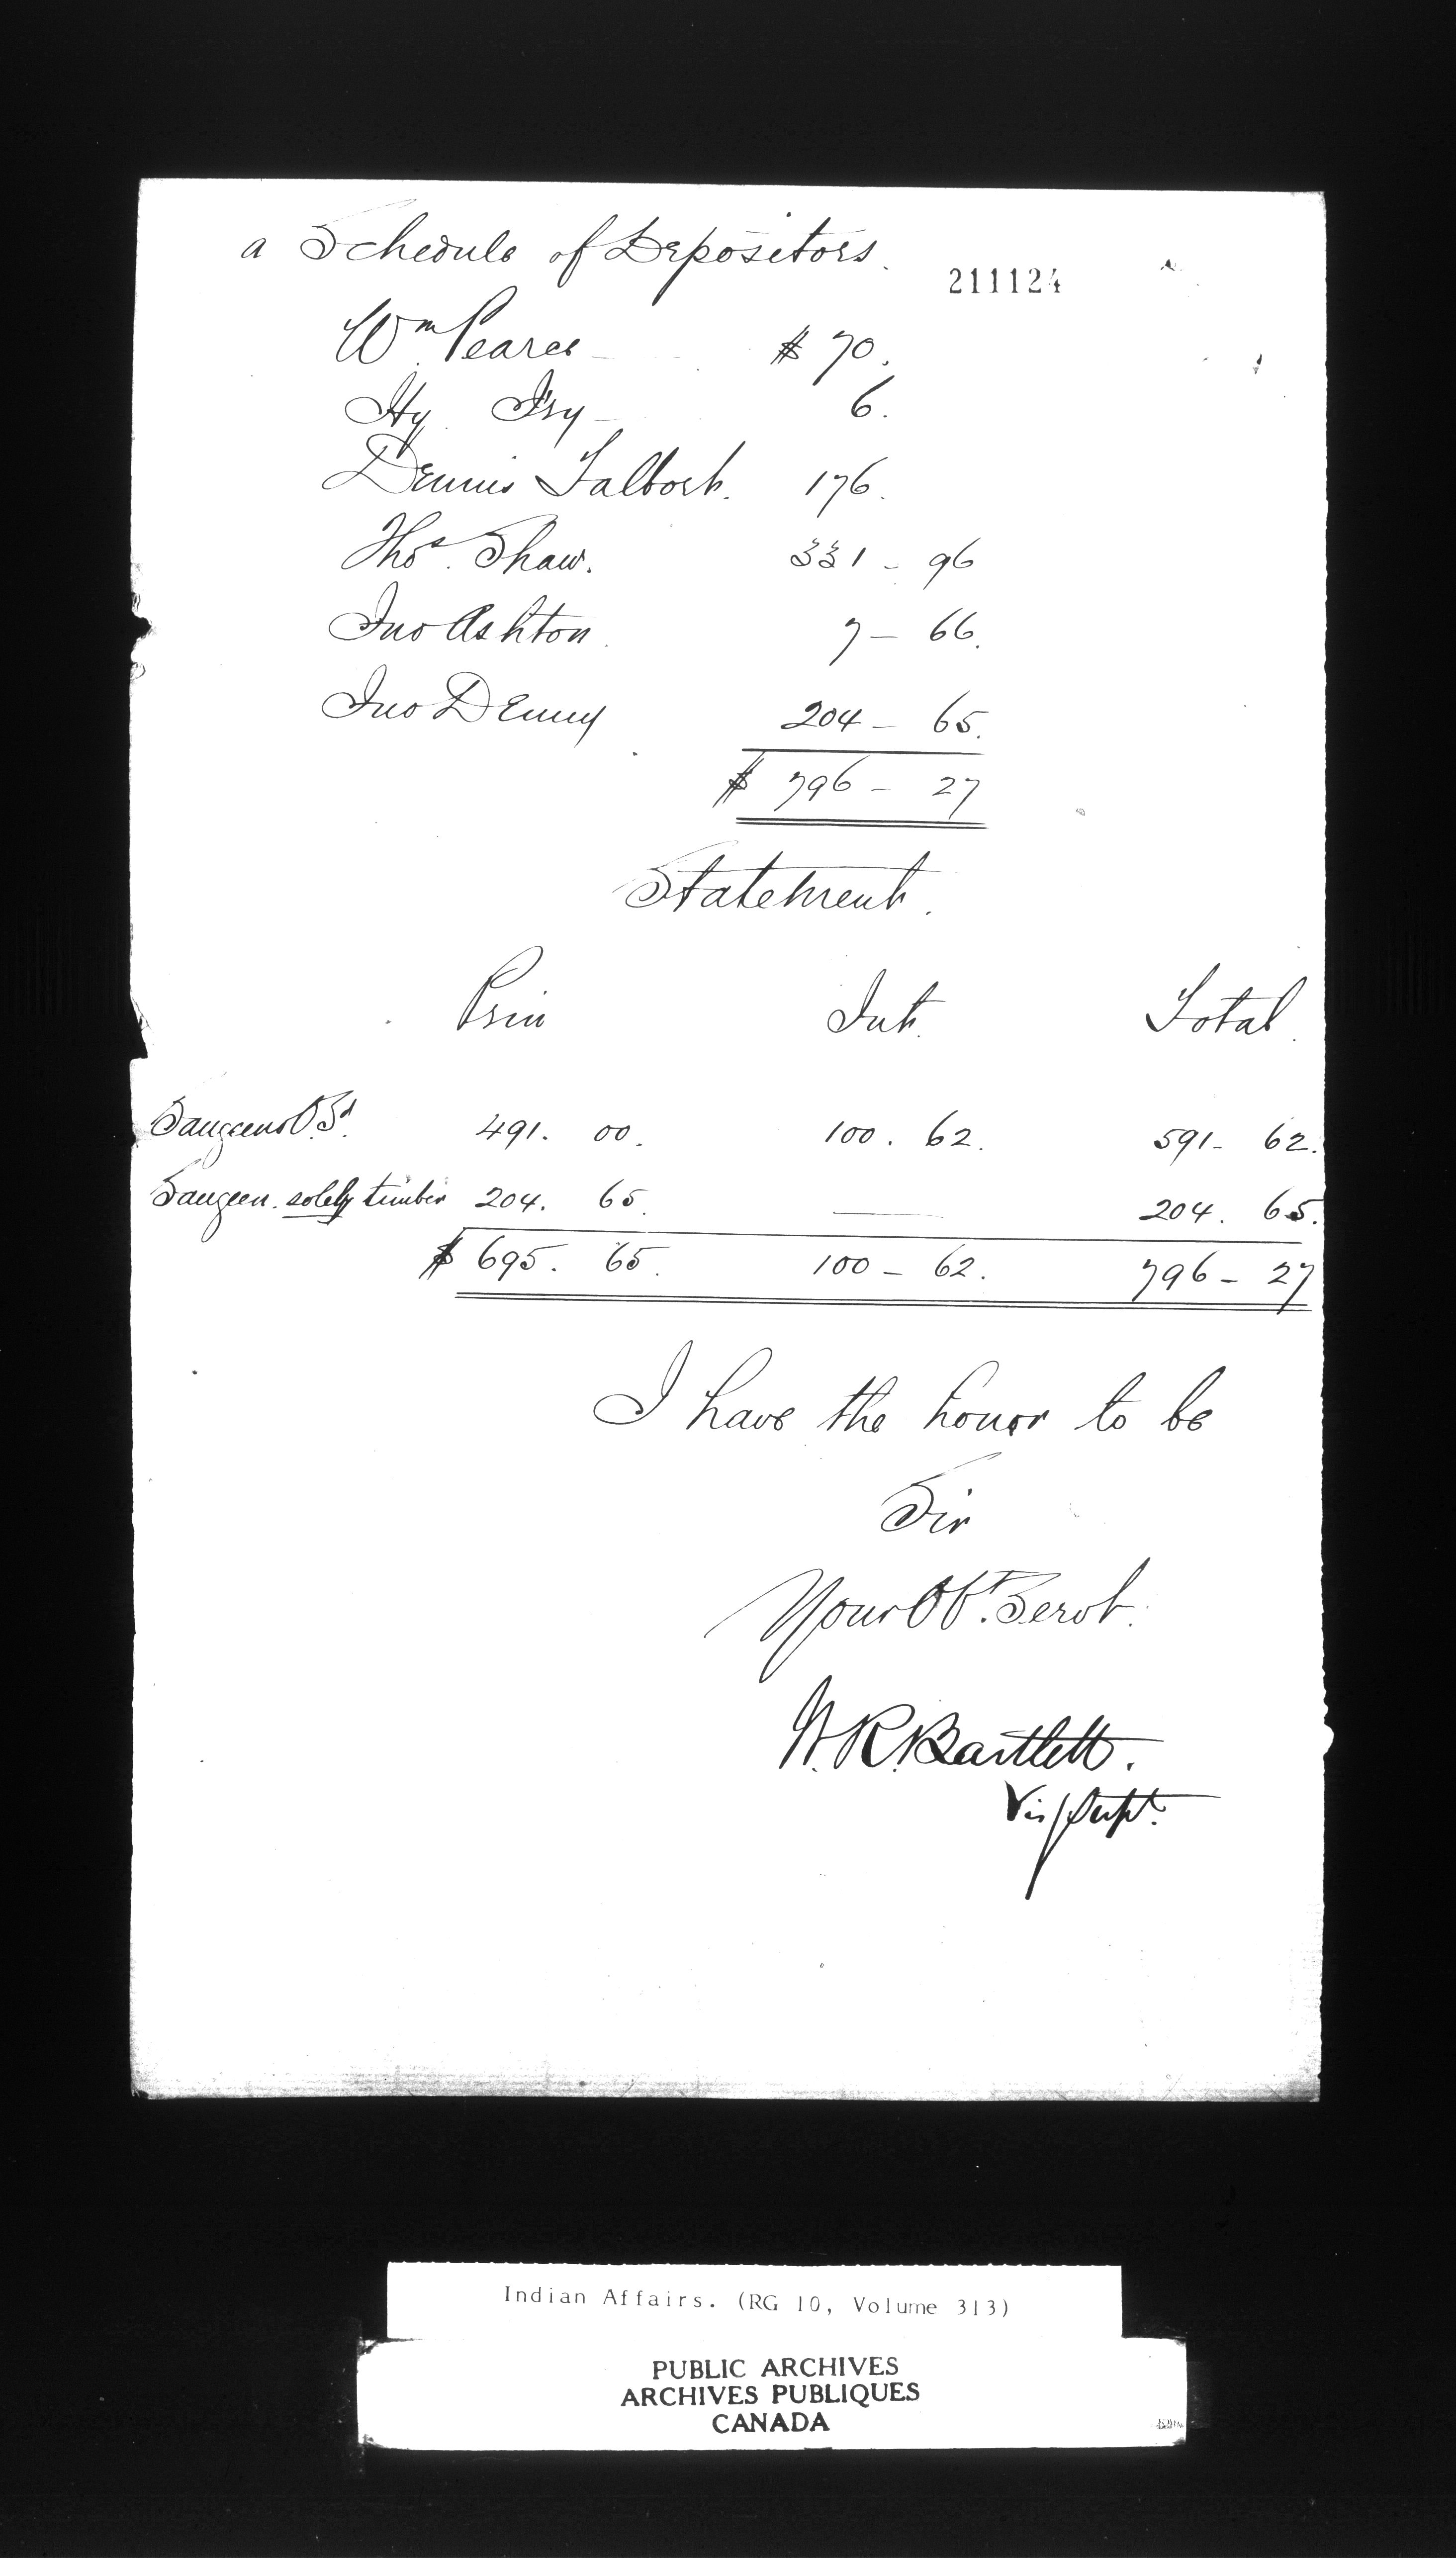 a Schedule of Depositors.
211124
Wm Pearce $ 70.
Hy Fry 6.
Dennis Talbort. 176.
Thos. Shaw. 331 - 96
Jno Ashton. 7 - 66.
Jno Denny 204 - 65.
$ 796 - 27
Statement.
Prin Int. Total.
Saugeen 491. 00. 100. 62. 591 - 62.
Saugeen. solely timber 204. 65. 204. 65.
$ 695. 65. 100 - 62. 796 - 27
I have the honor to be
Sir
Your Obt. Servt.
W. R. Bartlett.
Vis Supt.
Indian Affairs. (RG 10, Volume 313)
PUBLIC ARCHIVES
ARCHIVES PUBLIQUES
CANADA